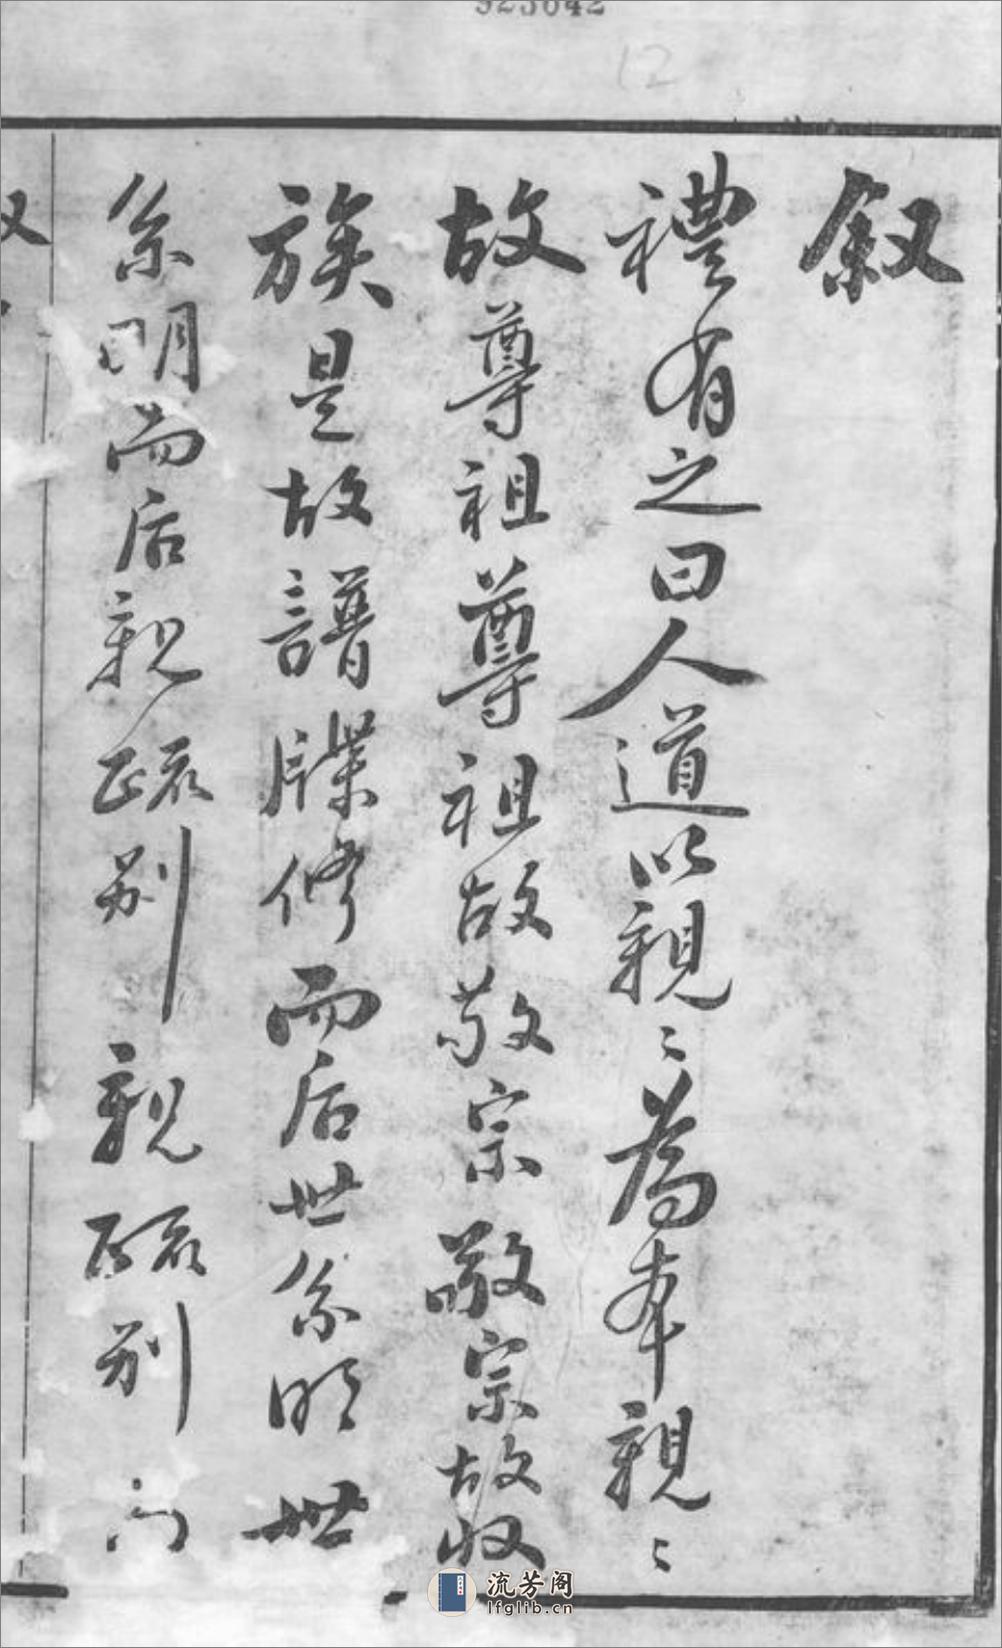 923042
12
叙
禮有之曰人道以親〻為本親〻
故尊祖尊祖故敬宗敬宗故收
族是故譜牒修而后世系明世
系明而后親疏别親疏别
流芳阁
lfglib.cn